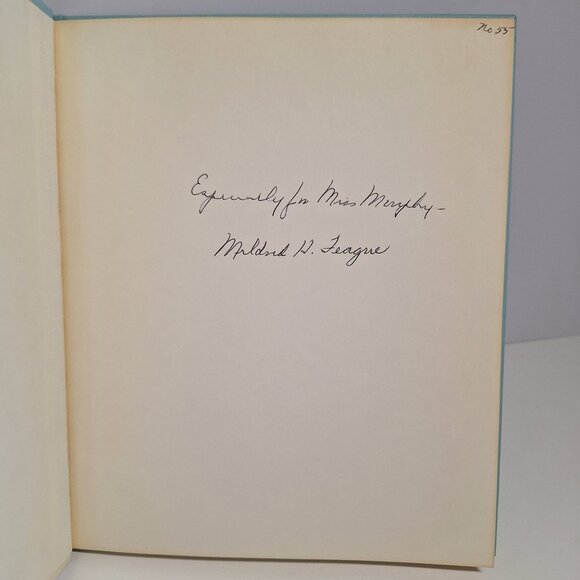 No 55
Especially for Miss Murphy –
Mildred H. Teague